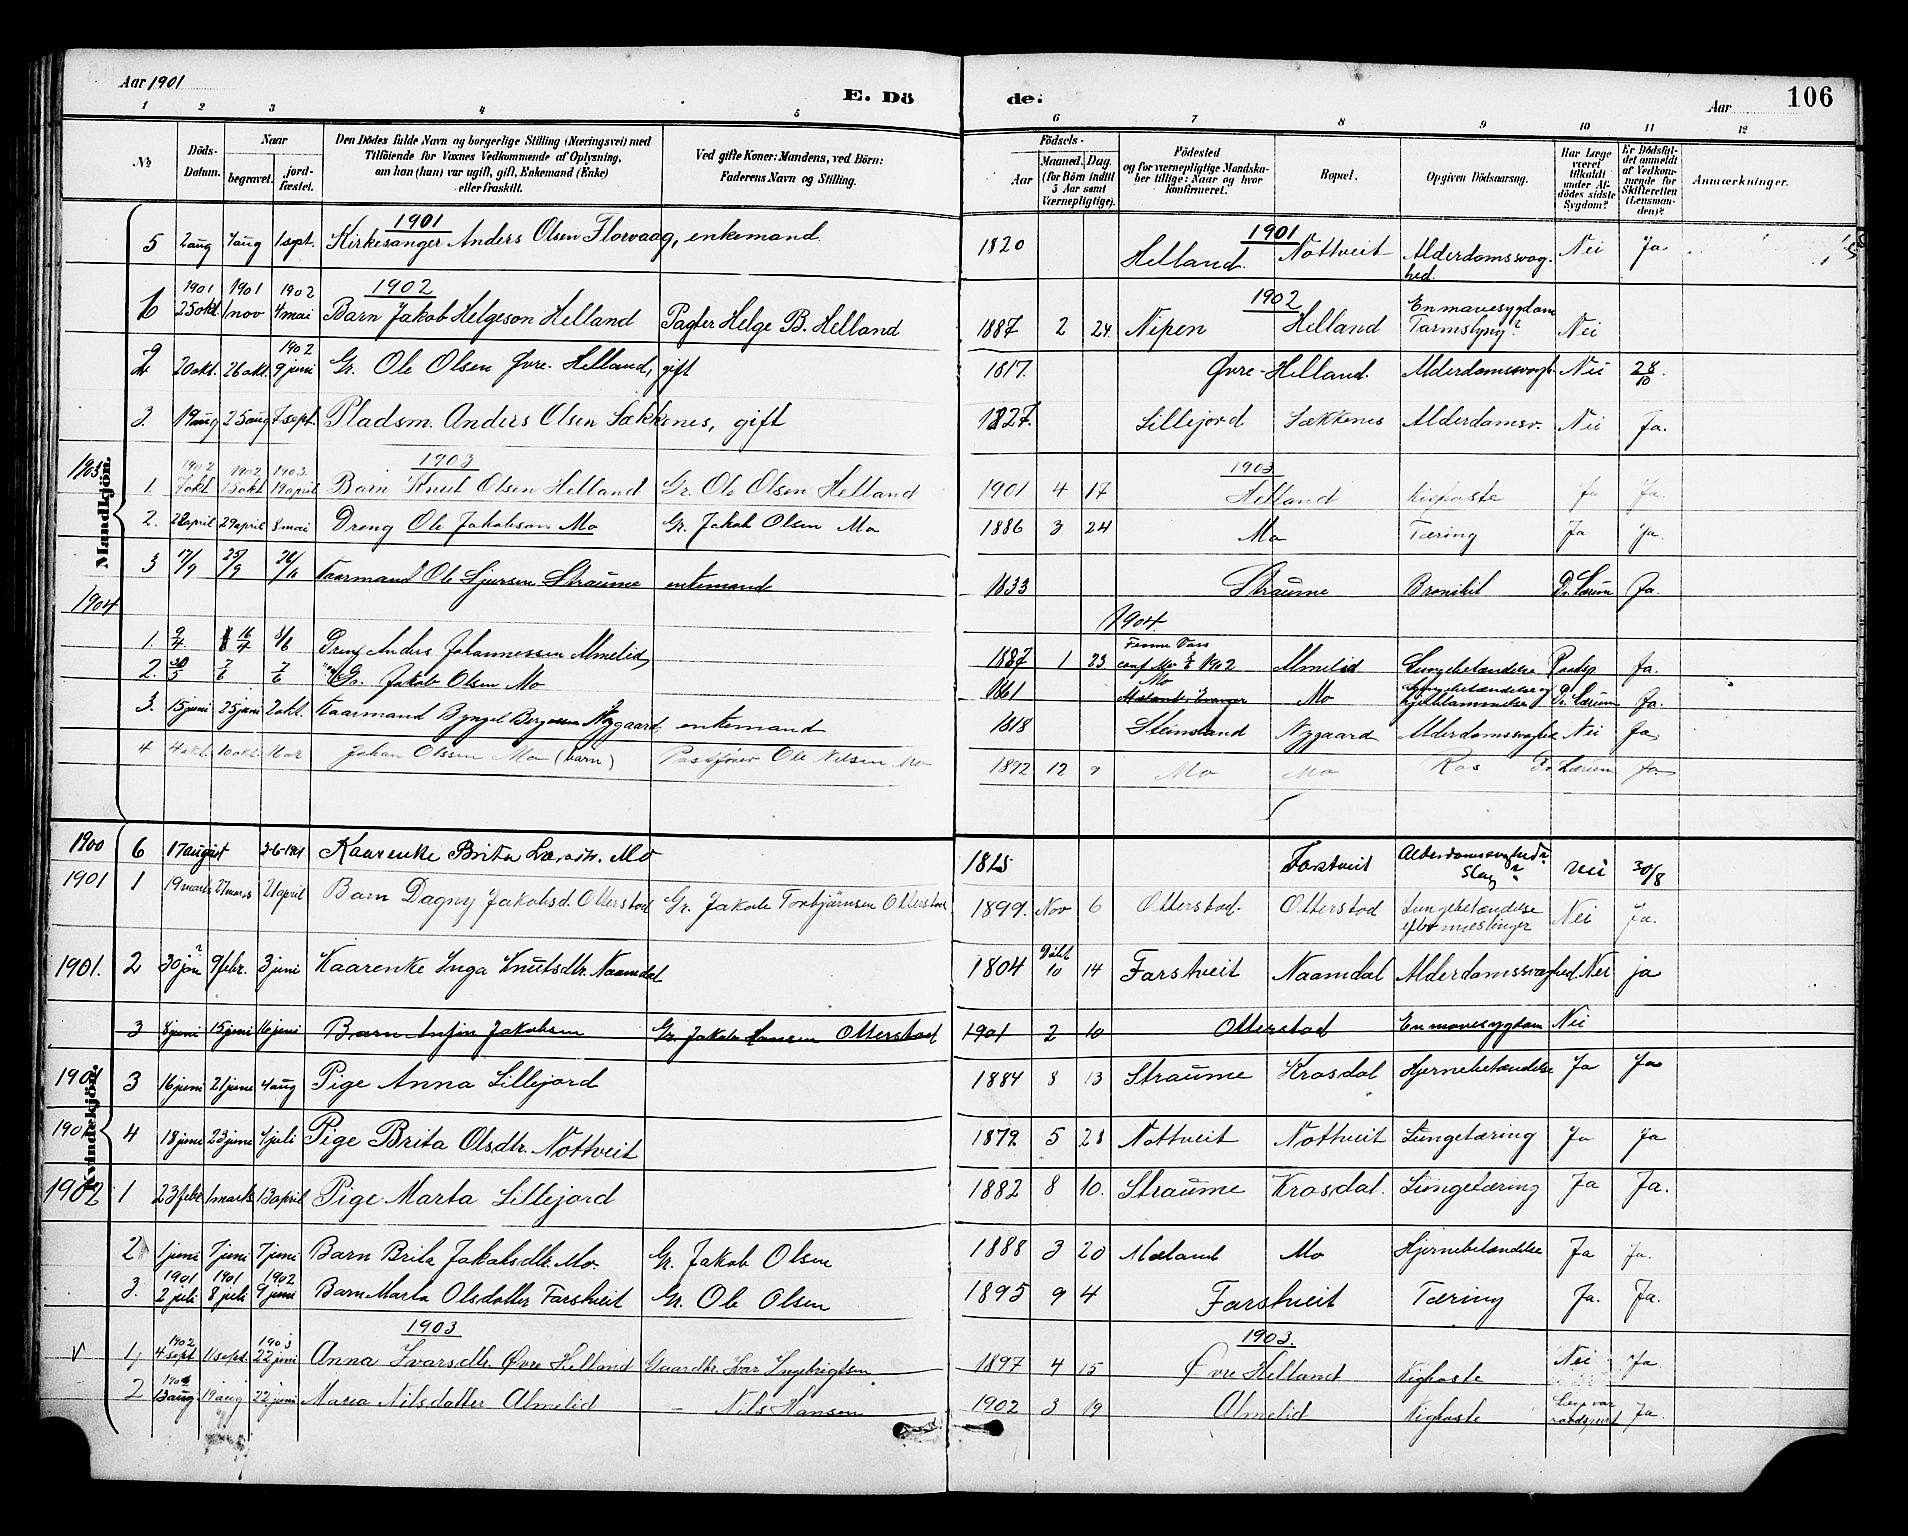 Aar 1901
E. Dö
de:
Aar
106
1 2 3 4 5 6 7 8 9 10 11 12
No.
Döds-Datum.
Naar
begravet.
jord-fæstet.
Den Dödes fulde Navn og borgerlige Stilling (Næringsvei) med
Tilföiende for Voxnes Vedkommende af Oplysning,
om han (hun) var ugift, gift, Enkemand (Enke)
eller fraskilt.
Ved gifte Koner: Mandens, ved Börn:
Faderens Navn og Stilling.
Födsels-
Aar
Maaned. Dag.
(for Börn indtil 5 Aar samt Værnepligtige).
Födested
og for værnepligtige Mandska-
ber tillige: Naar og hvor
konfirmeret.
Bopæl.
Opgiven Dödsaarsag.
Har Læge været tilkaldt under Afdödes sidste Sygdom?
Er Dödsfaldet anmeldt af Vedkommende for Skifteretten (Lensmanden)?
Anmærkninger.
Mandkjön.
1901 1901
5 2 aug 7 aug 1 sept. Kirkesanger Anders Olsen Florvaag, enkemand 1820 Helland. Nottveit Alderdomssvaghed. Nei Ja
1902 1902
6 1901 25 okt 1901 1 nov 1902 4 mai Barn Jakob Helgeson Helland Pagter Helge B. Helland 1887 2 24 Nipen Helland En mavesygdom Nei
2 20 okt. 26 okt. 1902 9 juni Gr. Ole Olsen Øvre-Helland, gift 1817. Øvre-Helland. Alderdomssvagh. Nei 28/10.
3. 19 aug 25 aug 7 sept. Pladsm. Anders Olsen Sækkenes, gift 1827. Lillejord Sækkenes Alderdomsv. Nei Ja.
1903 1903 1903
1. 1902 7 okt 1902 15 okt 1903 19 april Barn Knut Olsen Helland Gr. Ole Olsen Helland 1901 4 17 Helland Kighoste Ja Ja.
2. 22 april 29 april 8 mai Dreng Ole Jakobson Mo Gr. Jakob Olsen Mo 1886 3 24 Mo Tæring Ja Ja.
3 17/9 25/9 Kaarmand Ole Sjursen Straume enkemand 1833 Straume Bronchit Dr. Lærum Ja.
1904 1904.
1. 9/4 16/4 Dreng Anders Johannessen Almelid 1887 1 23 conf Mo 1902 Almelid Lungebetændelse Ja.
2. 30/5 Gr. Jakob Olsen Mo 1861 Mo Mo Lungebetændelse og Dr. Lærum Ja.
3. 15 juni 25 juni 2 okt. Kaarmand Nygaard, enkemand 1818 Steinsland Nygaard Alderdomssvaghed Nei Ja.
4 4 okt. 10 okt. Johan Olssen Mo (barn) Ole Nilsen Mo 1892 12 9 Mo Mo Ros Dr. Lærum Ja.
Kvindekjön.
1900 6 17 august Kaarenke Brita Mo 1815 Farstveit Alderdomssvaghed? Slag? nei 30/8
1901 1 19 marts 27 marts 21 april Barn Dagny Jakobsd. Otterstad Gr. Jakob Torbjörnsen Otterstad 1899. Nov 6 Otterstad. Otterstad Lungebetændelse efter mæslinger Nei Ja.
1901. 2 30 jan? 9 febr. 3 juni Kaarenke Inga Knutsdtr. Naamdal 1804 Döbt 10 14 Farstveit Naamdal Alderdomssvaghed. Nei ja
3 8 juni 15 juni 16 juni Barn Anfin Jakobsen Gr. Jakob Hansen Otterstad 1901 2 10 Otterstad En mavesygdom Nei
1901 3 16 juni 21 juni 4 aug Pige Anna Lillejord 1884 8 13 Straume Krosdal Hjernebetændelse Ja Ja
1901 4 18 juni 23 juni 7 juli Pige Brita Olsdtr. Nottveit 1872 5 28 Nottveit Nottveit Lungetæring Ja Ja
1902 1 23 febr 1 marts 13 april Pige Marta Lillejord 1882 8 10. Straume Krosdal. Lungetæring Ja Ja.
2 1 juni 7 juni 7 juni Barn Brita Jakobsdtr. Mo. Gr. Jakob Olsen 1888 3 20 Mæland Mo Hjernebetændelse Ja Ja.
3. 1901 2 juli 1901 8 juli 1902 9 juni Barn Marta Olsdatter Farstveit Gr. Ole Olsen 1895 9 4 Farstveit Tæring Ja. Ja.
1903 1903.
1, 1902 4 sept 11 sept. 1903 22 juni Anna Ivarsdtr. Øvre Helland Gaardbr. Ivar Ingebrigtsen 1897 4 15 Øvre Helland Kighoste Nei Ja.
2 13 aug. 19 aug 22 juni Maria Nilsdatter Almelid – Nils Hansen 1902 3 19 Almelid Kighoste Læge var raadspurt Ja.